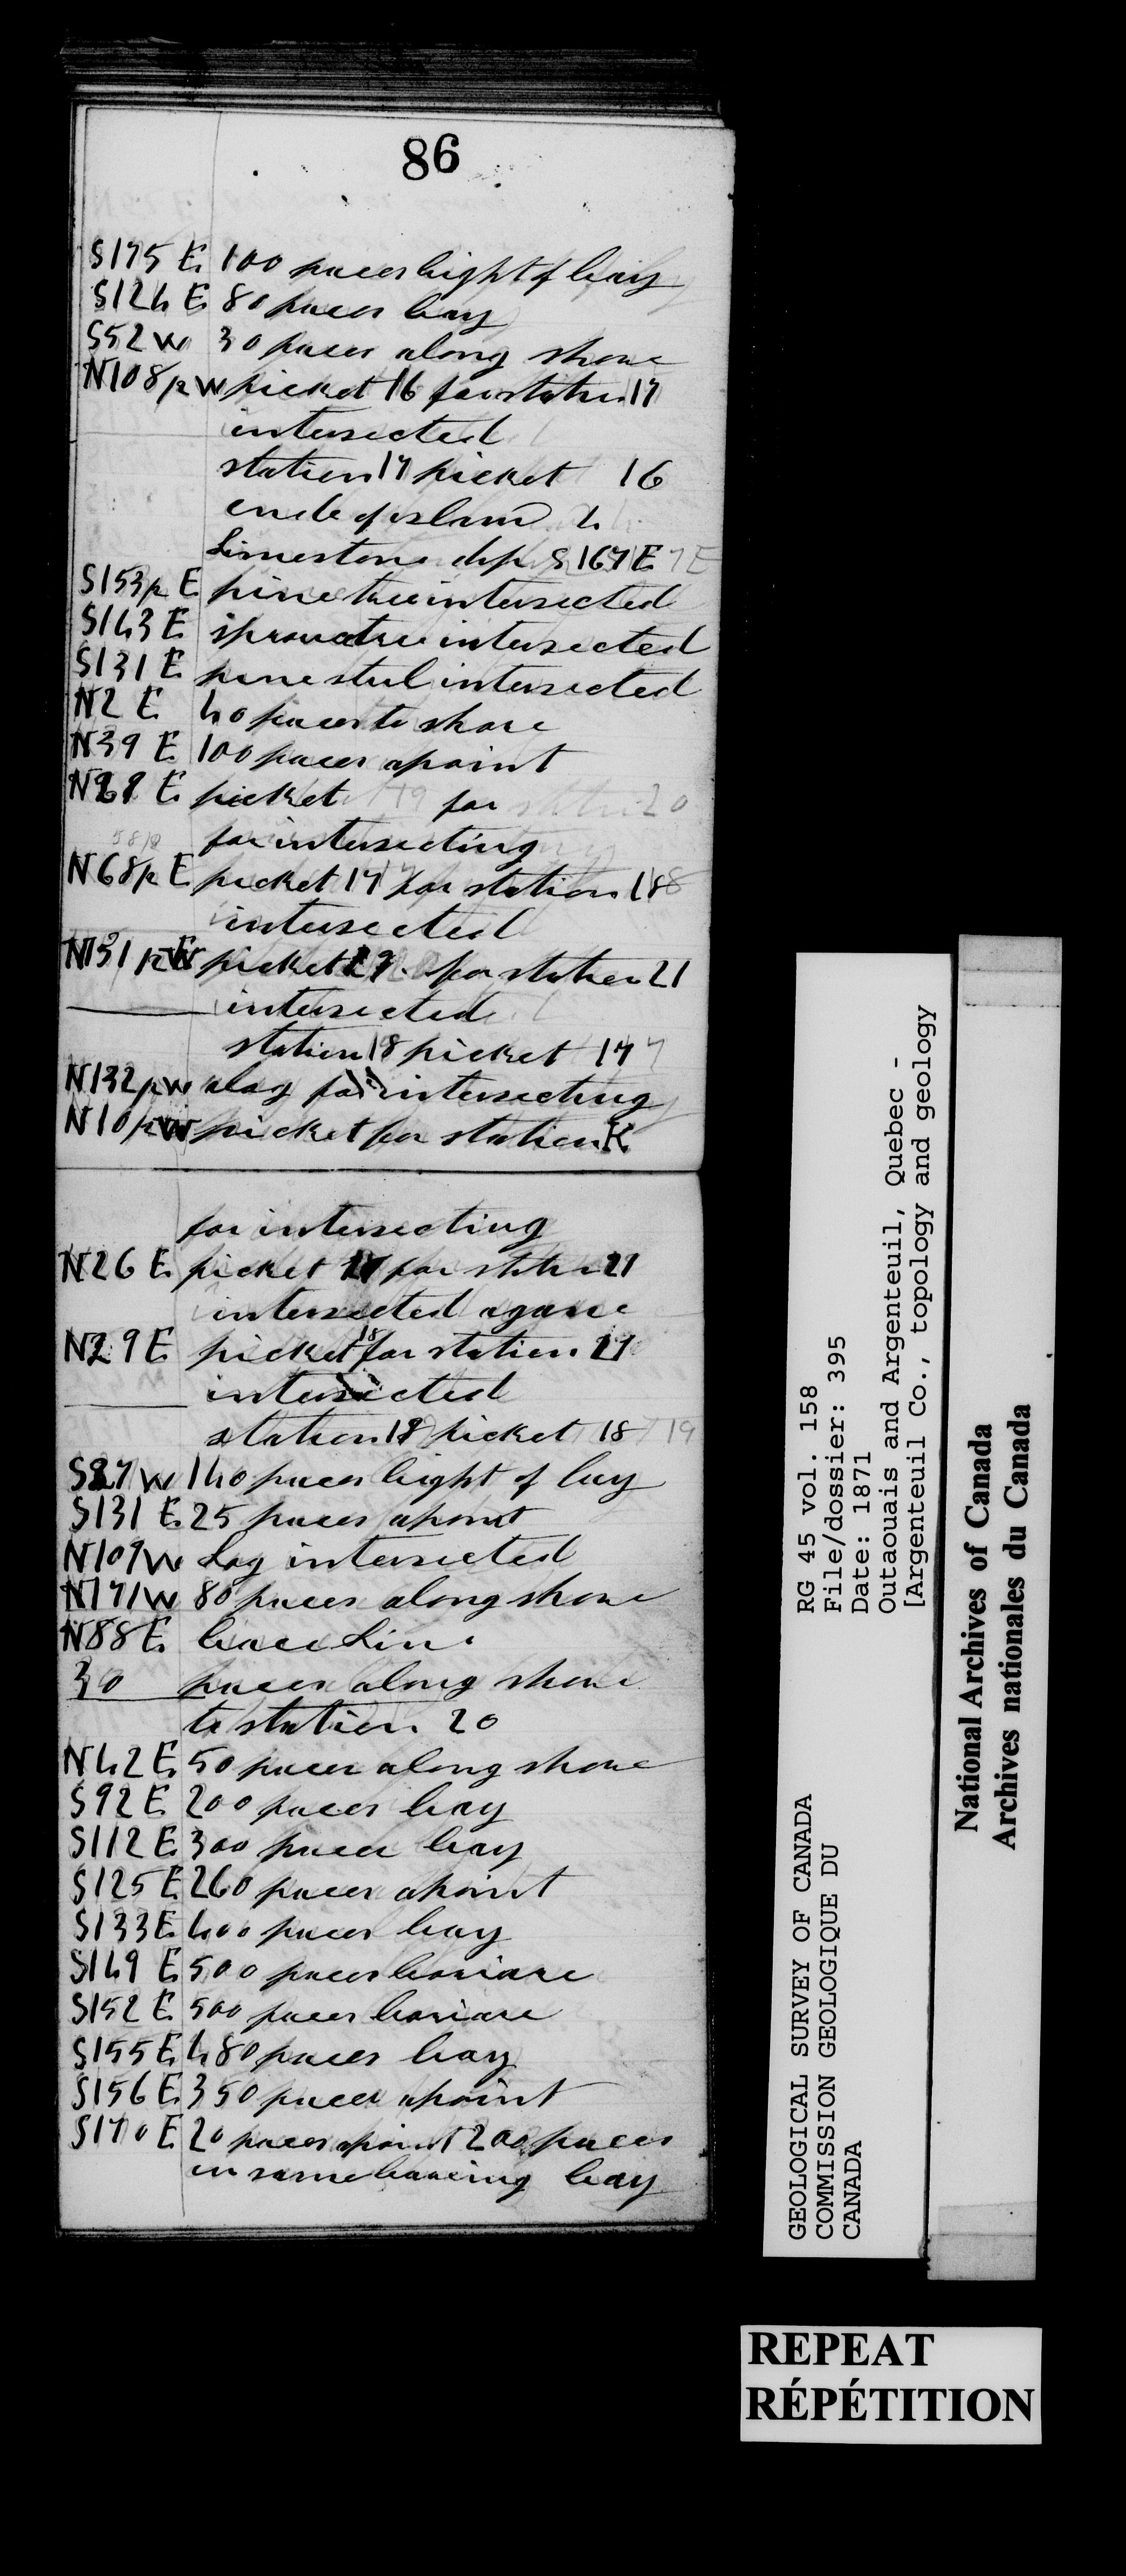 86
S175 E 100 paces hight of bay
S124 E 80 paces bay
S52 W 30 paces along shore
N108½ W picket 16 for station 17
intersected
station 17 picket 16
ende of island 2
Limestone dip S 167 E
S153½ E pine tree intersected
S143 E sprouctree intersected
S131 E pine stul intersected
N2 E 40 paces to shore
N39 E 100 paces apoint
E picket for
for intersecting
N68½ E picket 17 for station 18
intersected
picket for station 21
intersected
station 18 picket 17
N132½ W alog for intersecting
N10½ W picket for station K
for intersecting
N26 E picket for station 21
intersected agane
N29 E picket 18 for station
intersected
station picket 18
S27 W 140 paces hight of bay
S131 E 25 paces apoint
N109 W Log intersected
N171 W 80 paces along shore
N88 E bace Line
30 paces along shore
to station 20
N42 E 50 paces along shore
S92 E 200 paces bay
S112 E 300 paces bay
S125 E 260 paces apoint
S133 E 400 paces bay
S149 E 500 paces
S152 E 500 paces
S155 E 480 paces bay
S156 E 350 paces apoint
S170 E 20 paces apoint 200 paces
in same bearing bay
GEOLOGICAL SURVEY OF CANADA
COMMISSION GEOLOGIQUE DU
CANADA
RG 45 vol. 158
File/dossier: 395
Date: 1871
Outaouais and Argenteuil, Quebec -
[Argenteuil Co., topology and geology
National Archives of Canada
Archives nationales du Canada
REPEAT
RÉPÉTITION